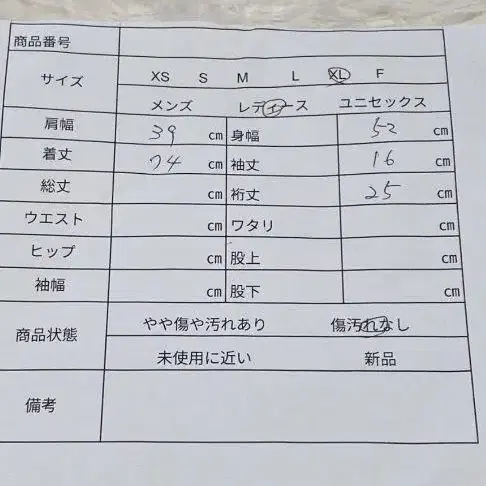 商品番号
サイズ XS S M L XL F
メンズ レディース ユニセックス
肩幅 39 cm 身幅 52 cm
着丈 74 cm 袖丈 16 cm
総丈 cm 裄丈 25 cm
ウエスト cm ワタリ cm
ヒップ cm 股上 cm
袖幅 cm 股下 cm
商品状態 やや傷や汚れあり 傷汚れなし
未使用に近い 新品
備考